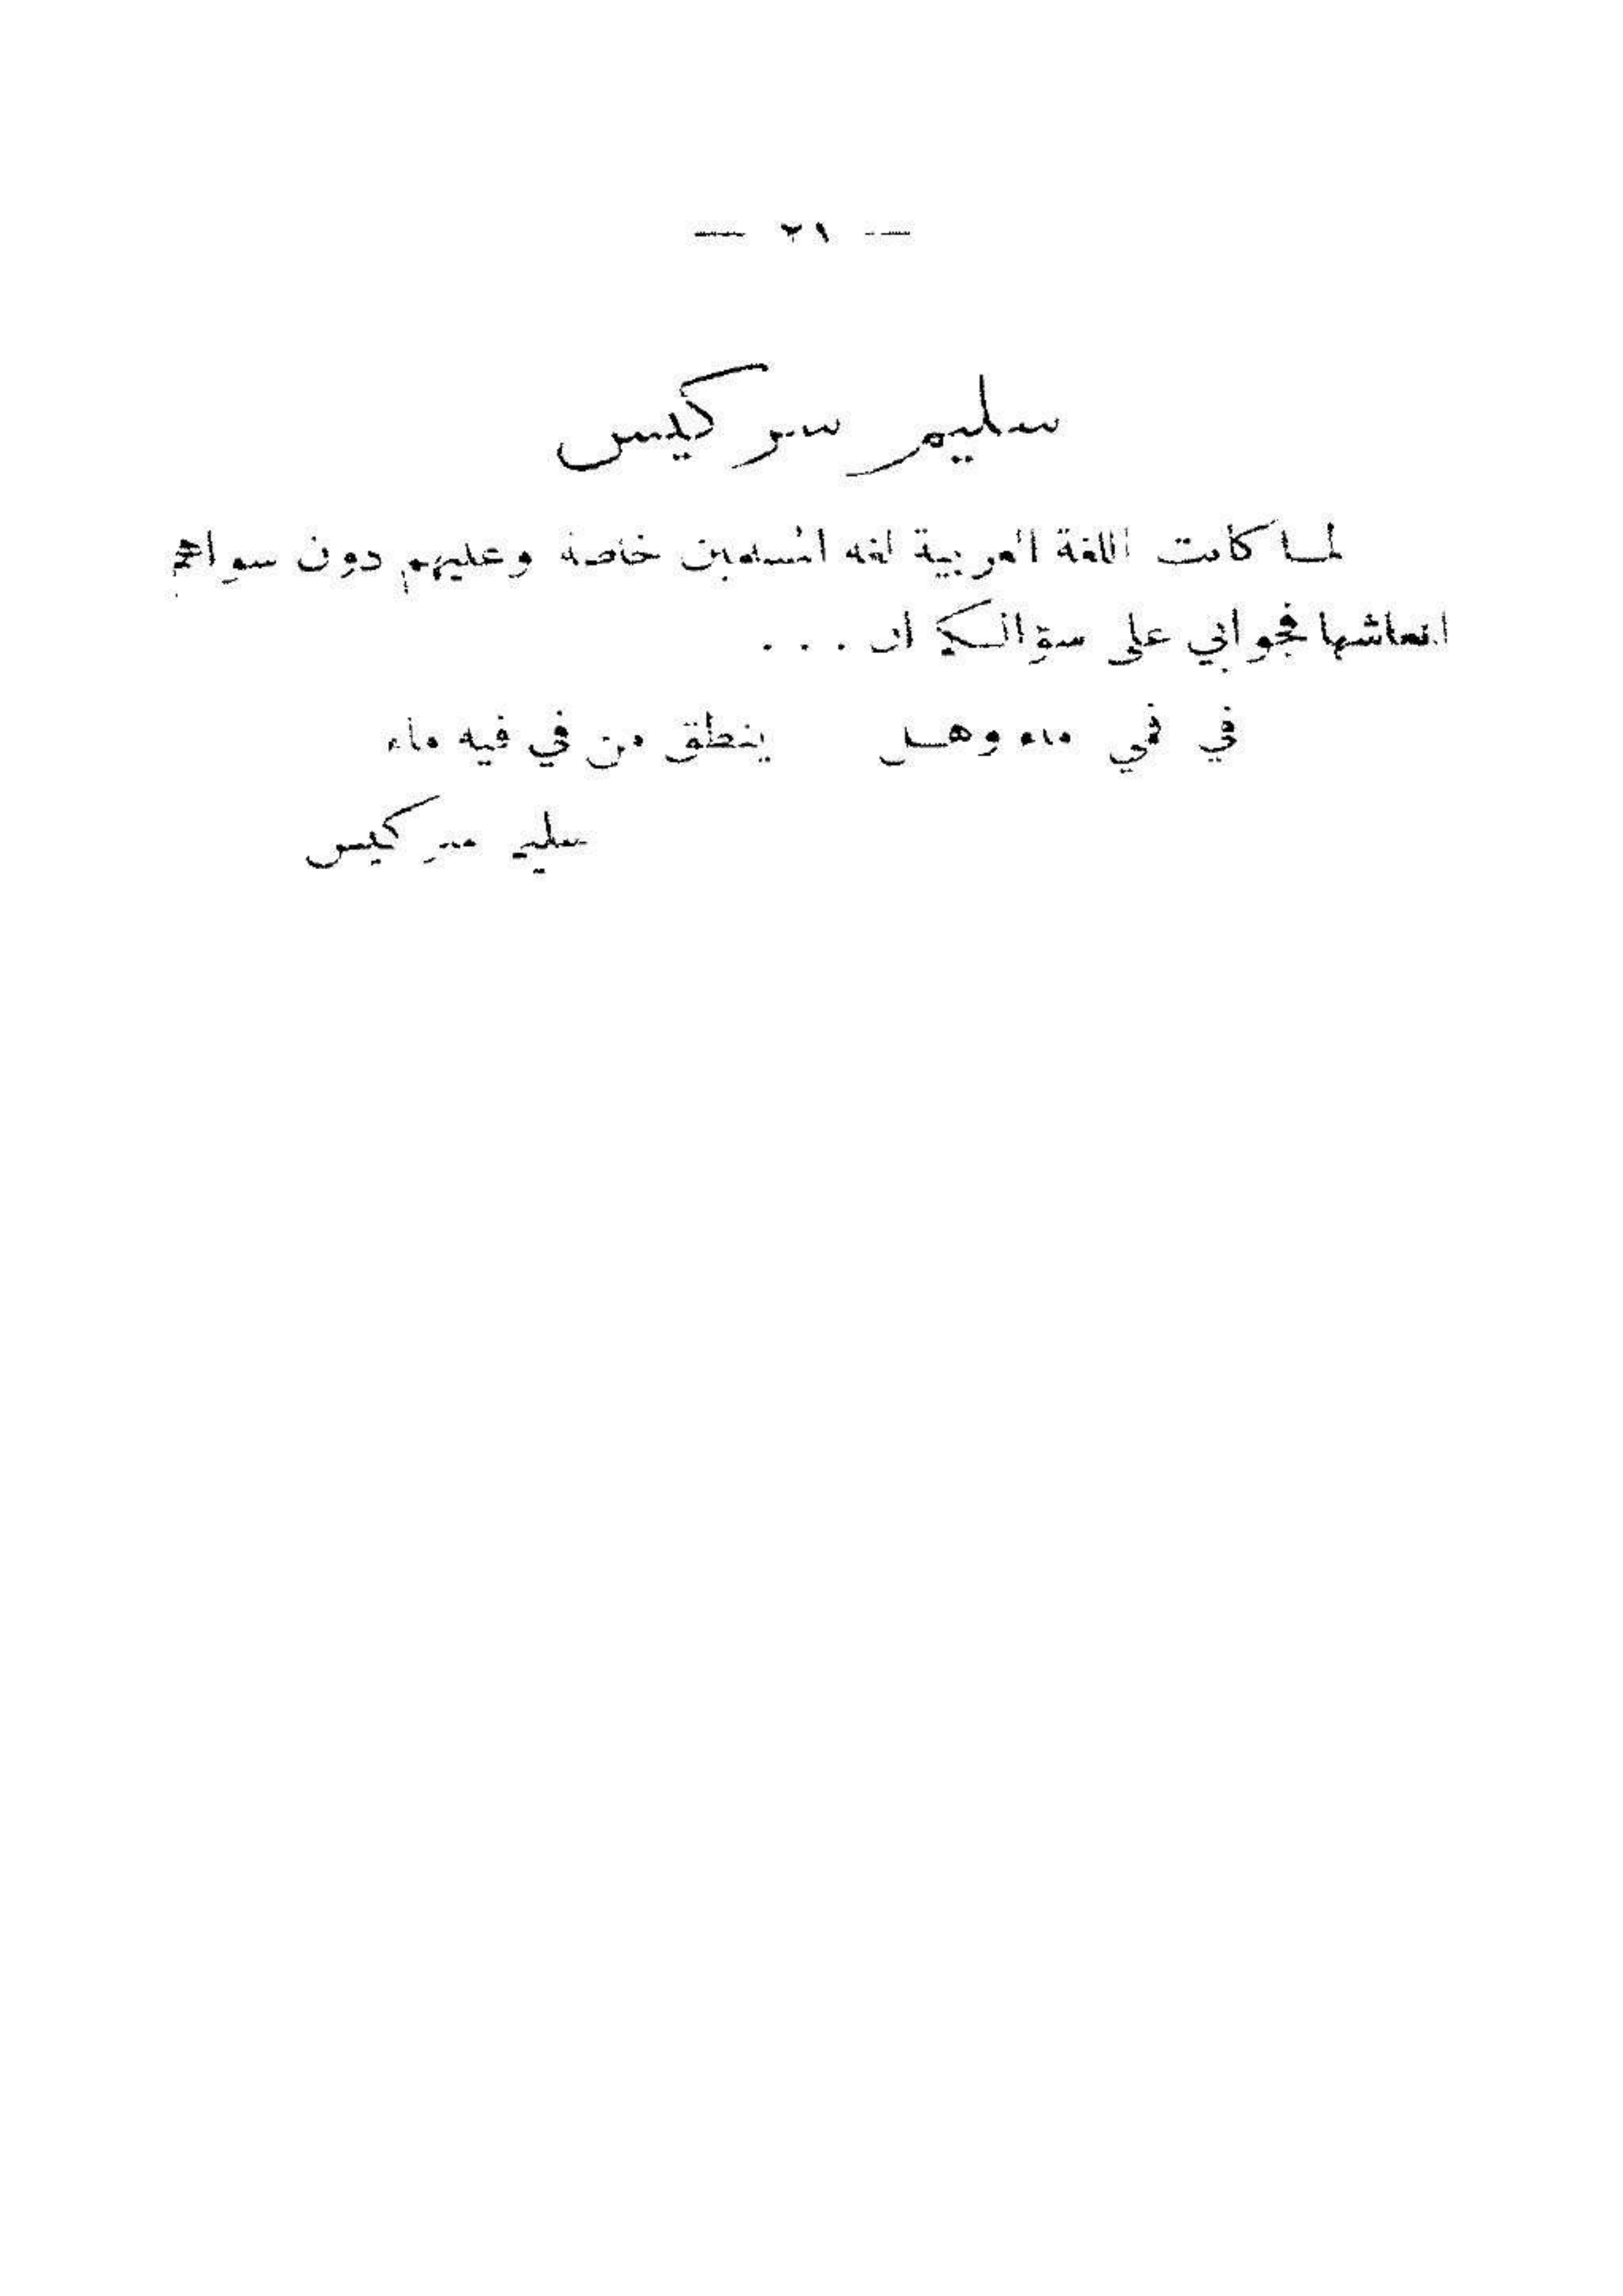 — ٢١ —
سليم سركيس
لما كانت اللغة العربية لغة المسلمين خاصة وعليهم دون سواهم
انعاشها فجوابي على سؤالكم ان . . .
في في ماء وهل ينطق من في فيه ماء
سليم سركيس